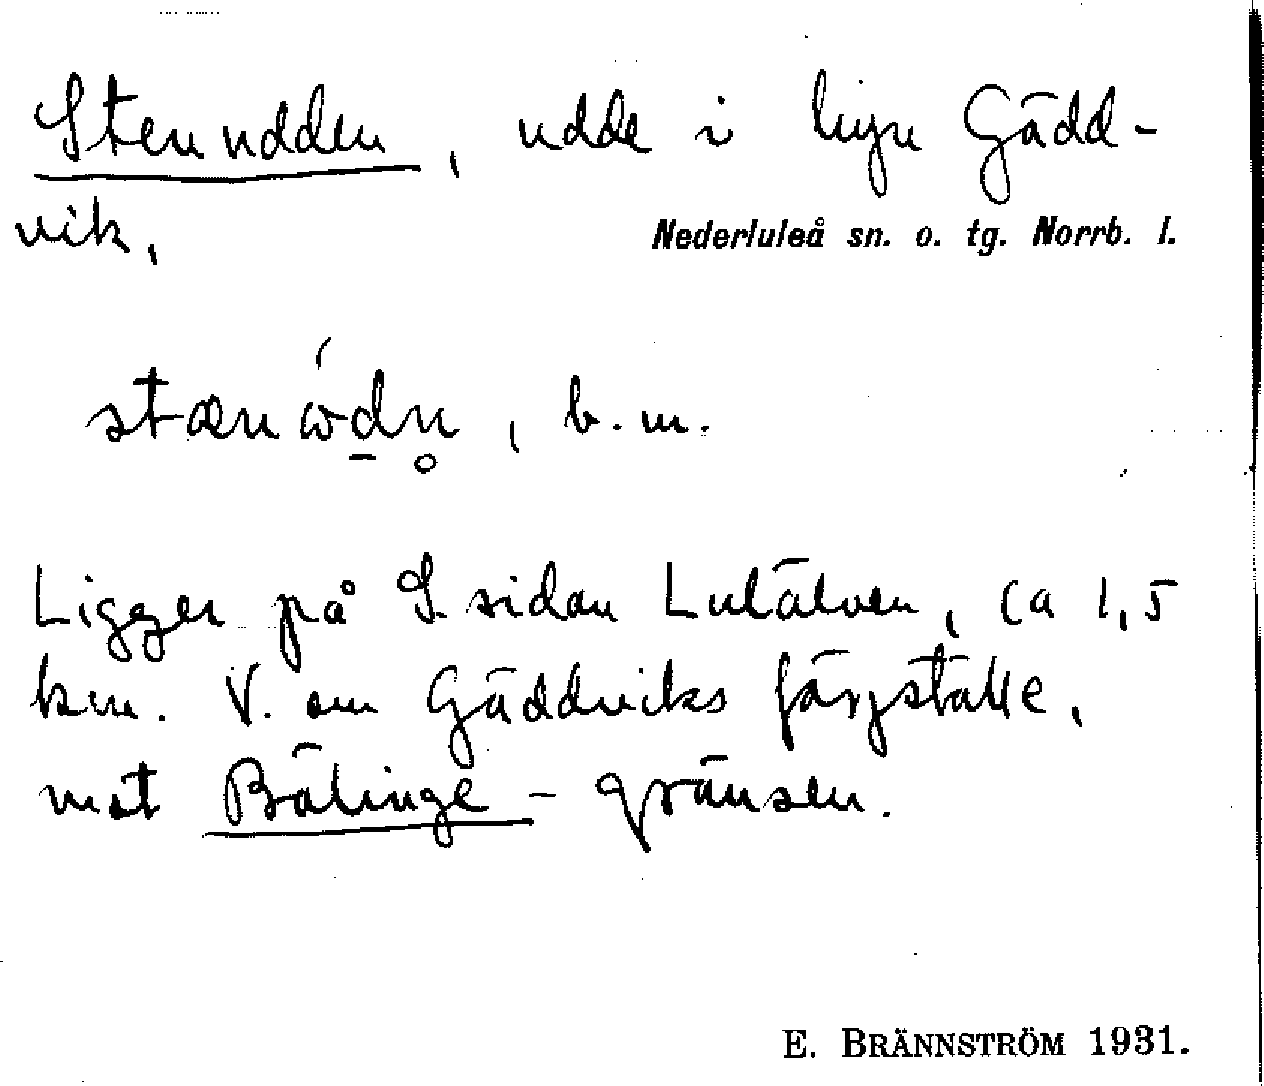 Stenudden, udde i byn Gädd-
vik,
Nederluleå sn. o. tg. Norrb. l.
stænώd̲n̥, b. m.
Ligger på S. sidan Luleälven, ca 1,5
km. V. om Gäddviks färjställe,
mot Bälinge-gränsen.
E. BRÄNNSTRÖM 1931.